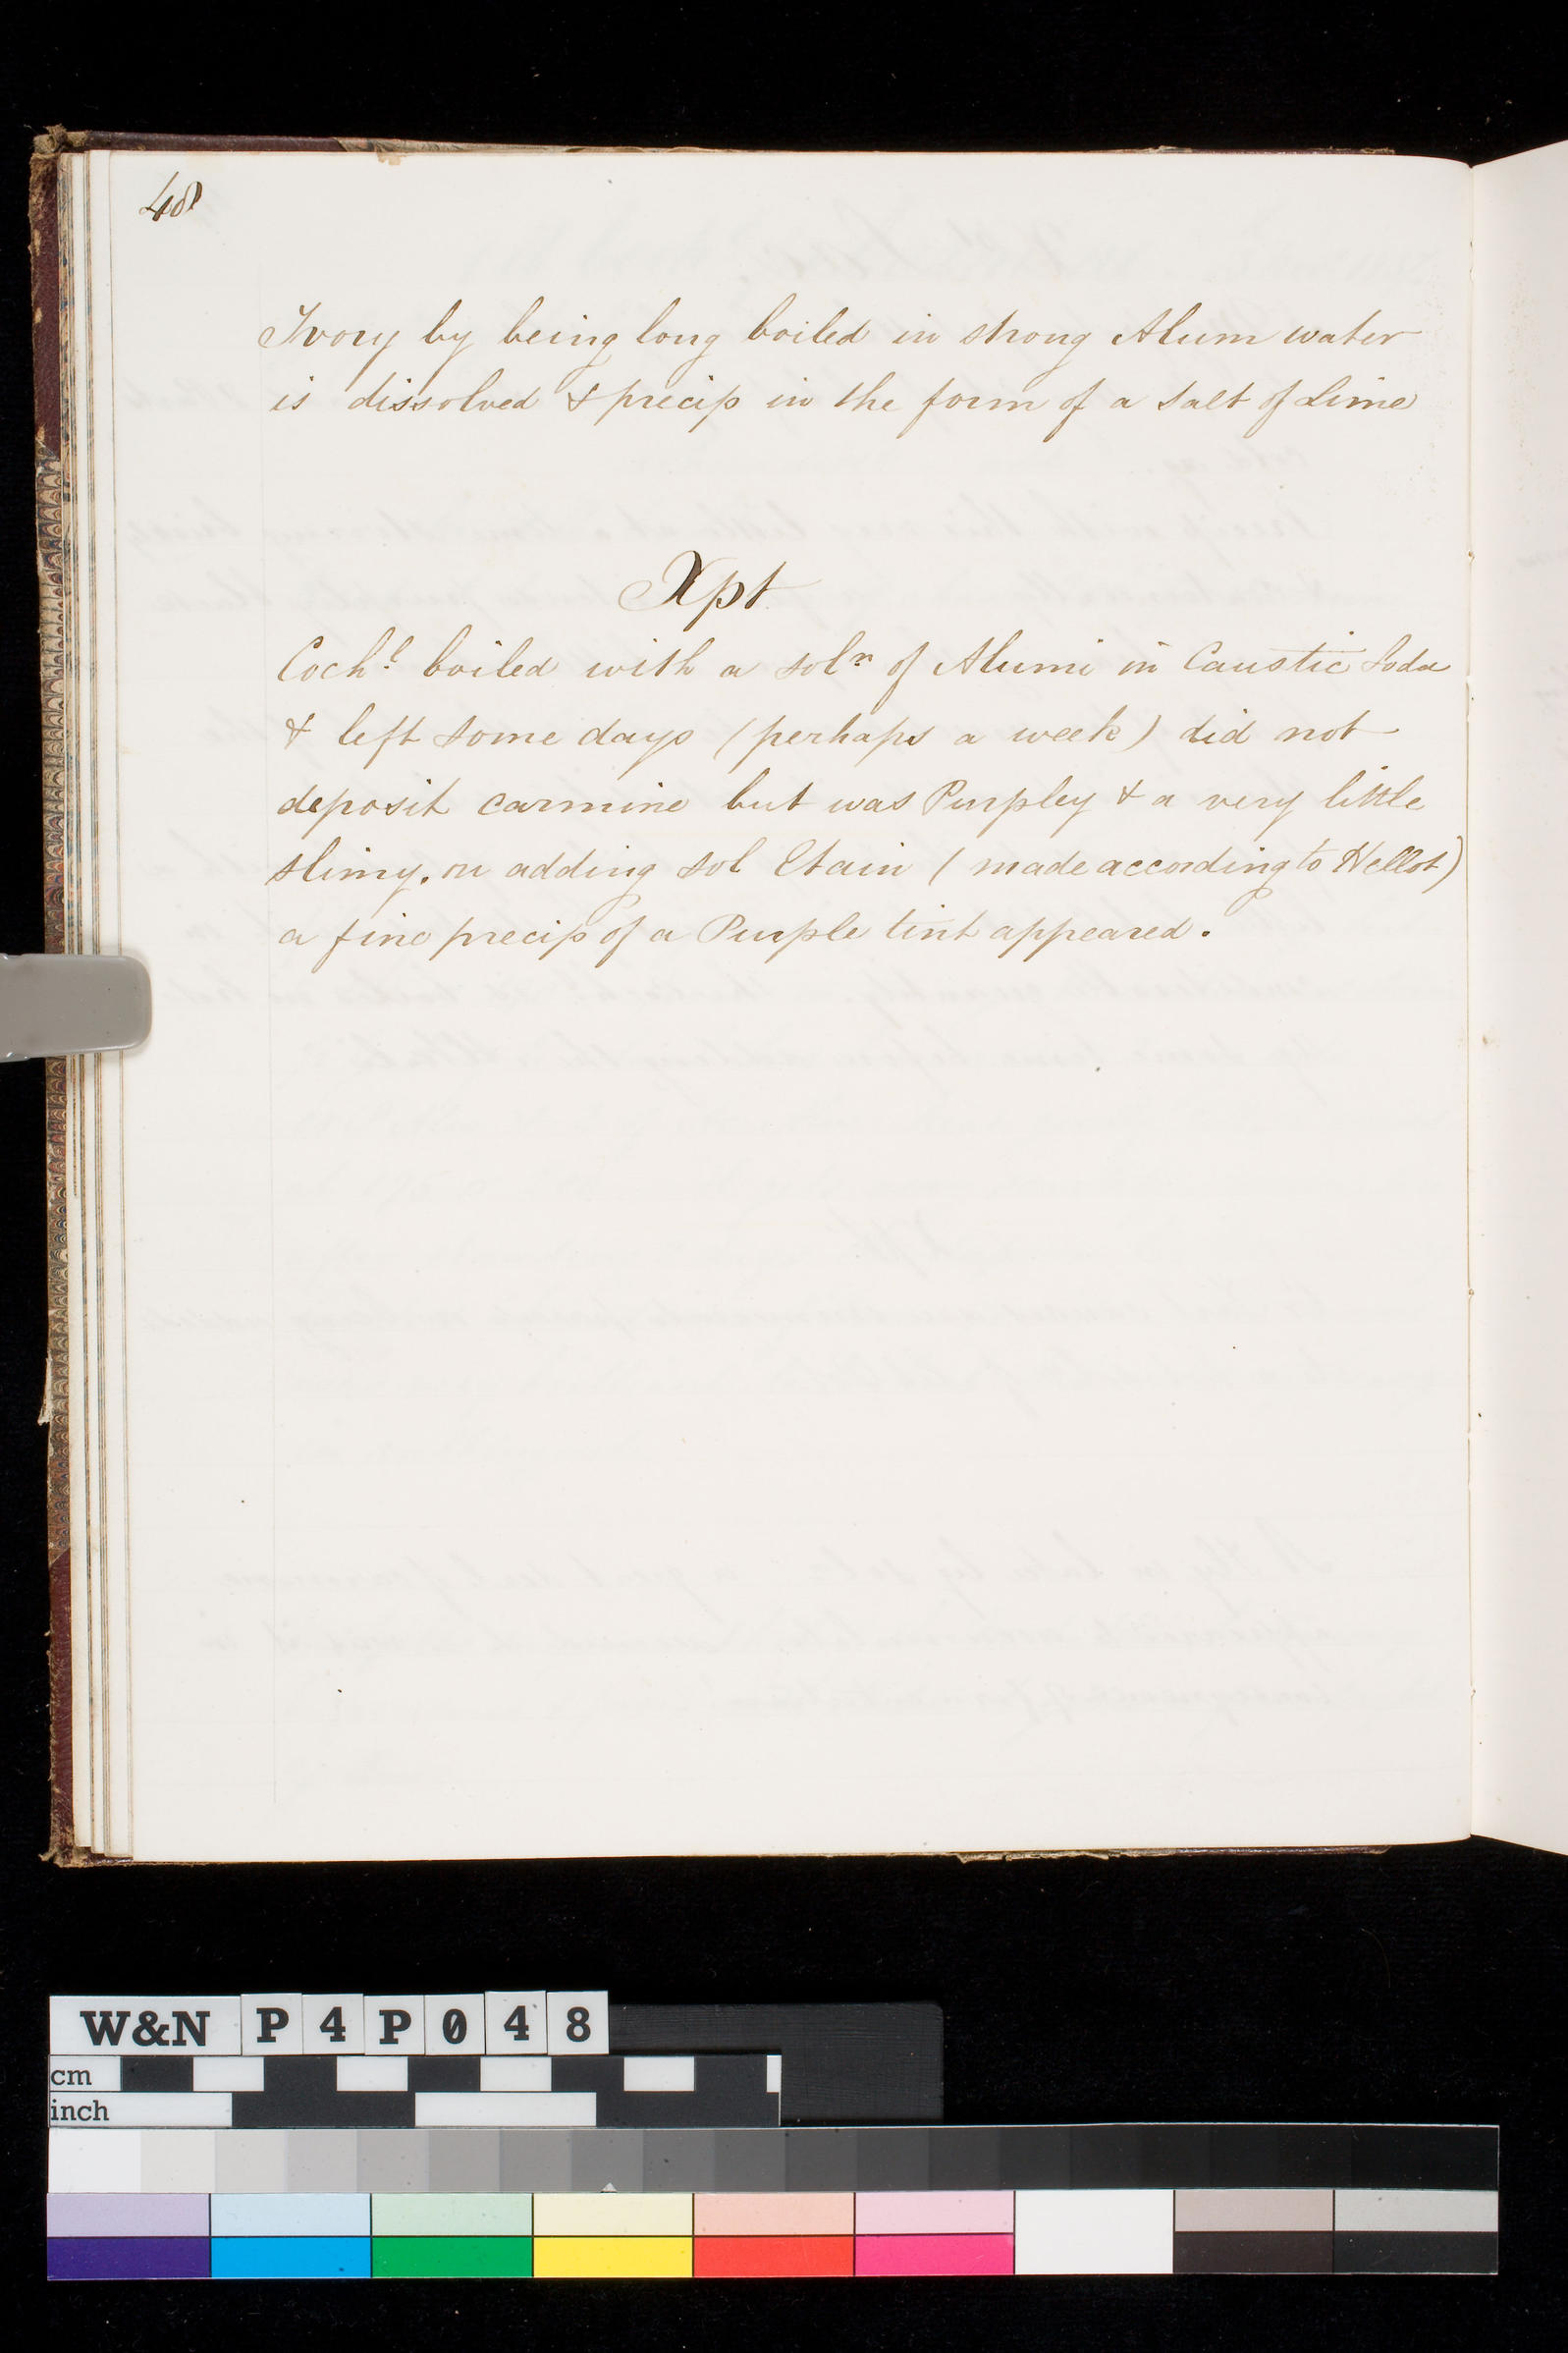 48
Ivory by being long boiled in strong Alum water
is dissolved & precip in the form of a Salt of Lime
Xpt
Coch.l boiled with a sol.n of Alumi in Caustic Soda
& left some days (perhaps a week) did not
deposit carmine but was Purpley & a very little
slimy. on adding sol Etain (made according to Hellot)
a fine precip of a Purple tint appeared.
W&N P4P048
cm
inch